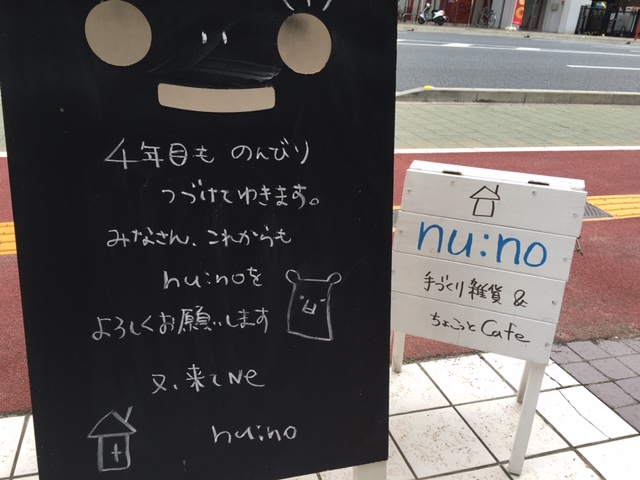 4年目も のんびり
つづけてゆきます。
みなさん、これからも
nu:noを
よろしくお願いします
又、来てNe
nu:no
nu:no
手づくり雑貨 &
ちょこっとCafe